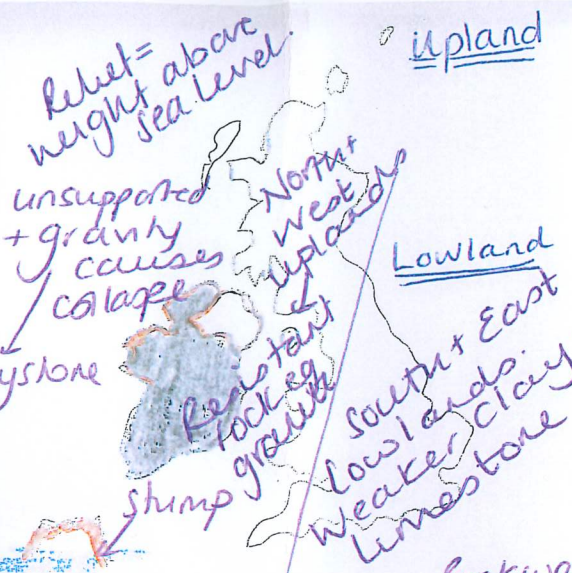 Relief =
height above
sea level.
Upland
unsupported
+ gravity
causes
collapse
North +
West
uplands
Lowland
Resistant
rock eg
granite
South + East
Lowlands.
Weaker Clay
limestone
stump